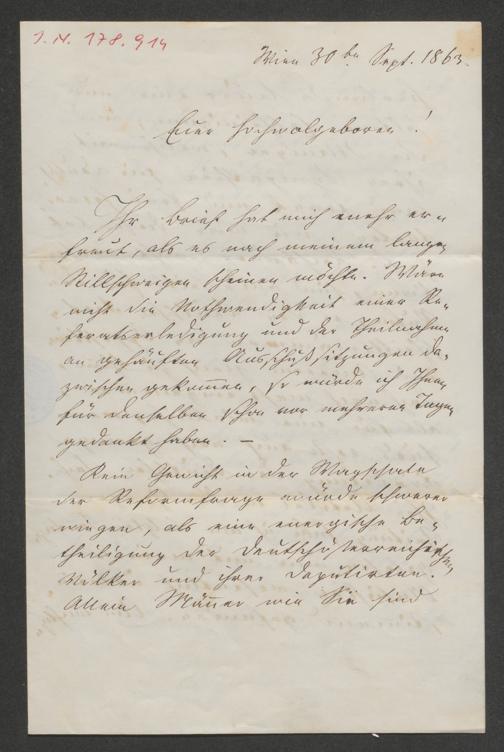 I.N. 178.914
Wien 30ten Sept. 1863.
Euer Hochwolgeboren!
Ihr Brief hat mich mehr er=
freut, als es nach meinem langen
Stillschweigen scheinen möchte. Wäre
nicht die Nothwendigkeit einer Re=
feratserledigung und der Theilnahme
an gehäuften Ausschußsitzungen da=
zwischen gekommen, so würde ich Ihnen
für denselben schon vor mehreren Tagen
gedankt haben. —
Kein Gewicht in der Wagschale
der Reformfrage würde schwerer
wiegen, als eine energische Be=
theiligung der deutschösterreichischen
Völker und ihrer Deputirten.
Allein Männer wie Sie sind